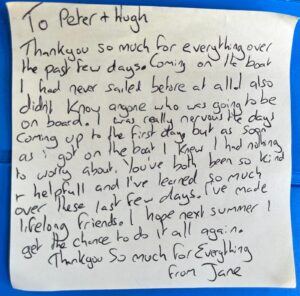 To Peter + Hugh
Thankyou so much for everything over
the past few days. Coming on the boat
I had never sailed before at all. I also
didn't know anyone who was going to be
on board. I was really nervous the days
coming up to the first day, but as soon
as i got on the boat I knew I had nothing
to worry about. You've both been so kind
+ helpfull and I've learned so much
over these last few days. I've made
lifelong friends. I hope next summer I
get the chance to do it all again.
Thankyou So much for Everything
from Jane